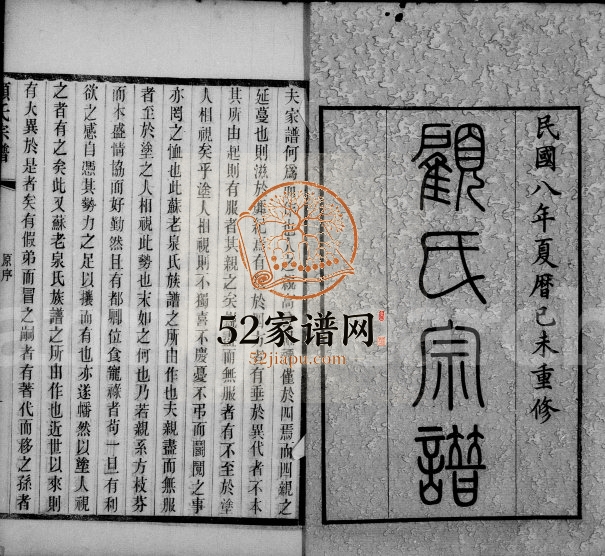 民國八年夏曆己未重修
顧氏宗譜
夫家譜何為
僅於四焉而四親之
延蔓也則滋於
有垂於異代者不本
其所由起則有服者其親之矣
而無服者有不至於塗
人相視矣乎塗人相視則不獨喜不慶憂不弔而鬪鬩之事
亦罔之恤也此蘇老泉氏族譜之所由作也夫親盡而無服
者至於塗之人相視此勢也末如之何也乃若親系方枝芬
而本盛情協而好勤然且有都郿位食寵祿者苟一旦有利
欲之感自憑其勢力之足以攘而有也亦遂幡然以塗人視
之者有之矣此又蘇老泉氏族譜之所由作也近世以來則
有大異於是者矣有假弟而冒之嗣者有著代而移之孫者
顧氏宗譜
原序
52家谱网
52jiapu.com